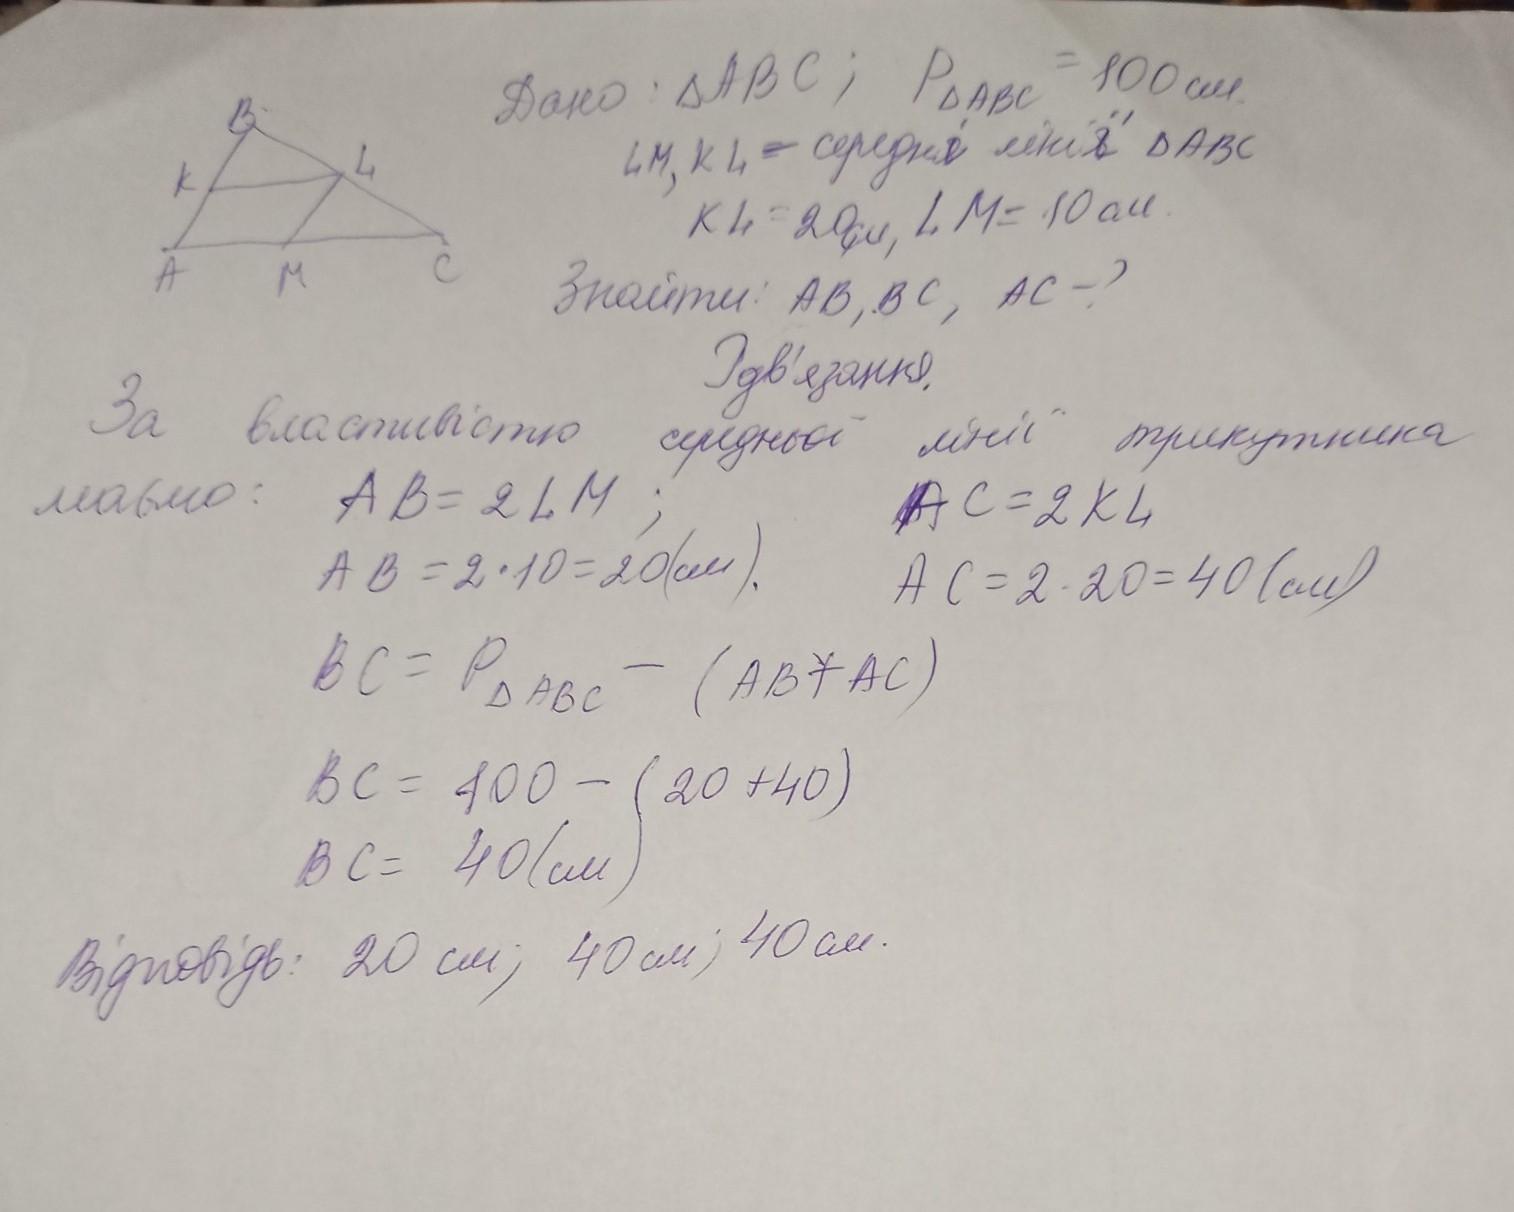 Дано: ΔABC; P_ΔABC = 100 см.
LM, KL – середні лінії ΔABC
KL = 20 см, LM = 10 см.
Знайти: AB, BC, AC – ?
B
K
L
A
M
C
Здв'язання.
За властивістю середньої лінії трикутника
маємо: AB = 2LM; AC = 2KL
AB = 2·10 = 20 (см). AC = 2·20 = 40 (см)
BC = P_ΔABC – (AB + AC)
BC = 100 – (20 + 40)
BC = 40 (см)
Відповідь: 20 см; 40 см; 40 см.